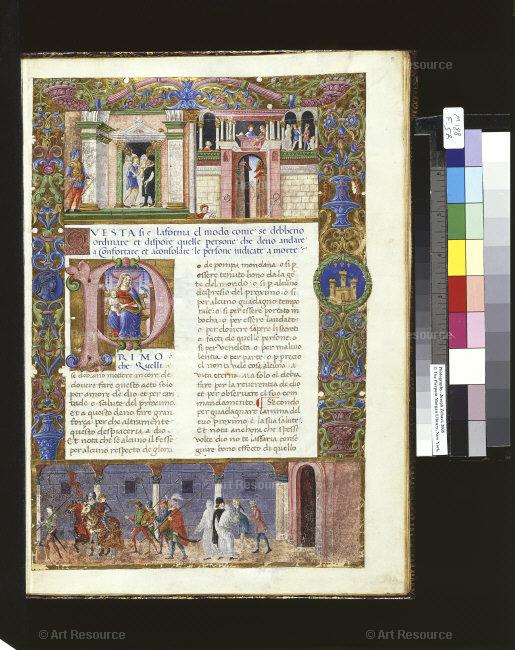 © Art Resource
© Art Resource
M188
F 5R
QVESTA sie laforma el modo come se debbeno
ordinare et dispore quelle persone che deno andare
a confortare et aconsolare le persone iudicate a morte
PRIMO
che Quelli
se debiano mettere in core de
douere fare questo acto solo
per amore de dio et per cari
tade o salute del proximo
et a questo deno fare gran
forza per che altramente
questo despaceria a dio
Et nota che se alcuno il fesse
per alcuno respecto de gloria
o de pompa mondana o si p
essere tenuto bono da la ge
te del mondo o si p alcuno
despresio del proximo o si
per alcuno guadagno tempo
rale o si per essere portato in
bocha o per essere laudato
o per douere sapere li secreti
o facti de quelle persone o
si per vendeta o per maliuo
lentia o per parte o p precio
el non li uale cosa alcuna a
vita eterna ma solo el debia
fare per la reuerentia de dio
et per obseruare el suo com
mandamento Secondo
per guadaquare lanima del
tuo proximo e la sua salute
Et nota anchora che spesse
volte dio no te lassaria conse
guire bono effecto di quello
Photography: Joseph Zehavi, 2005
© The Pierpont Morgan Library, New York
© Art Resource
© Art Resource